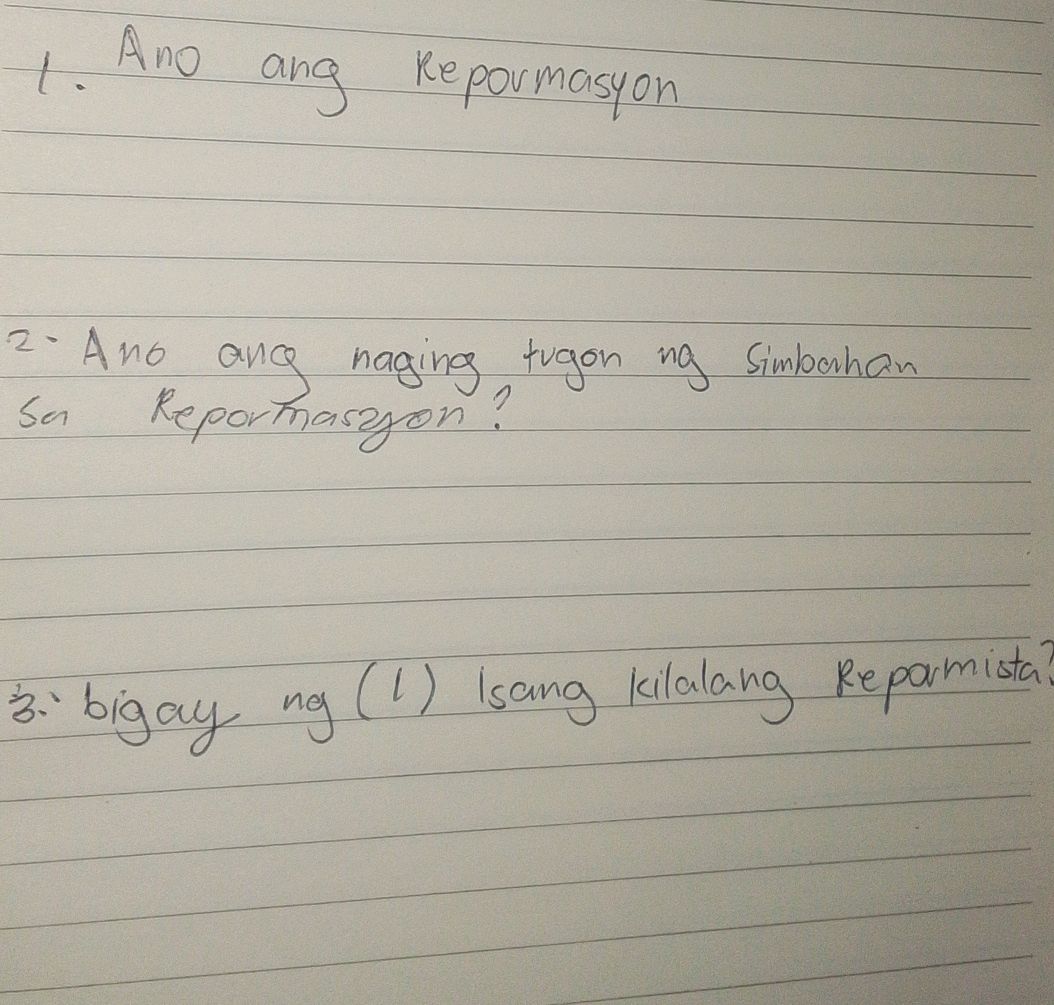 1. Ano ang Repormasyon
2. Ano ang naging tugon ng Simbahan
sa Repormasyon?
3. bigay ng (1) Isang kilalang Repormista?